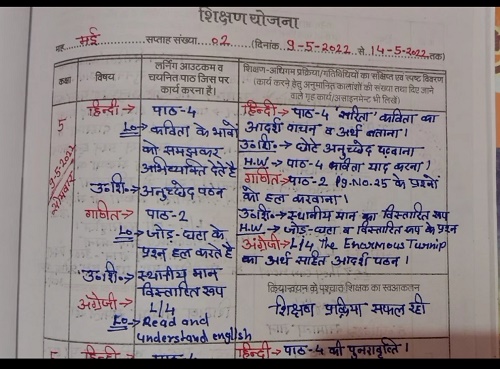 शिक्षण योजना
माह मई सप्ताह संख्या 02 (दिनांक 9-5-2022 से 14-5-2022 तक)
कक्षा
विषय
लर्निंग आउटकम व
चयनित पाठ जिस पर
कार्य करना है।
शिक्षण-अधिगम प्रक्रिया/गतिविधियों का संक्षिप्त एवं स्पष्ट विवरण
(कार्य करने हेतु अनुमानित कालांशों की संख्या तथा दिए जाने
वाले गृह कार्य/असाइनमेन्ट भी लिखें)
5
9-5-2022
सोमवार
हिन्दी→ पाठ-4
Lo→ कविता के भावों
को समझकर
अभिव्यक्ति देते है
उ०शि०→ अनुच्छेद पठन
गणित→ पाठ-2
Lo→ जोड़-घटा के
प्रश्न हल करते है
उ०शि०→ स्थानीय मान
विस्तारित रूप
अंग्रेजी→ L/4
Lo→ Read and
understand english
हिन्दी→ पाठ-4 "सरिता" कविता का
आदर्श वाचन व अर्थ बताना।
उ०शि०→ छोटे अनुच्छेद पढ़वाना
H.W→ पाठ-4 कविता याद करना।
गणित→ पाठ-2 Pg.No.25 के प्रश्नों
को हल करवाना।
उ०शि०→ स्थानीय मान का विस्तारित रूप
H.W→ जोड़-घटा व विस्तारित रूप के प्रश्न
अंग्रेजी→ L/4 The Enormous Turnip
का अर्थ सहित आदर्श पठन।
क्रियान्वयन के पश्चात् शिक्षक का स्वआकलन
शिक्षण प्रक्रिया सफल रही
5 हिन्दी→ पाठ-4
हिन्दी→ पाठ-4 की पुनरावृत्ति।